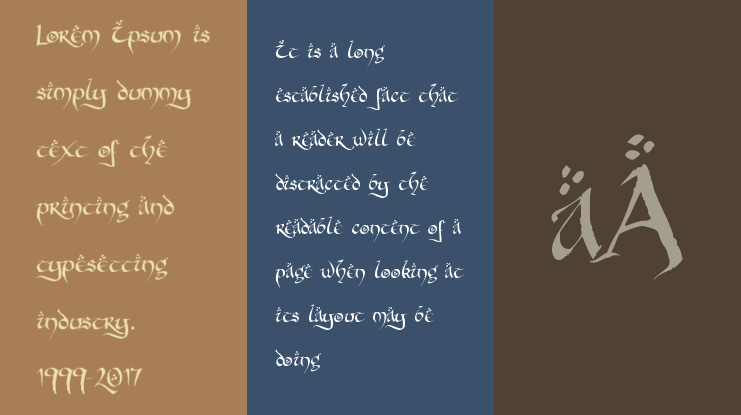 Lorem Ipsum is
simply dummy
text of the
printing and
typesetting
industry.
1999-2017
It is a long
established fact that
a reader will be
distracted by the
readable content of a
page when looking at
its layout may be
doing
aA